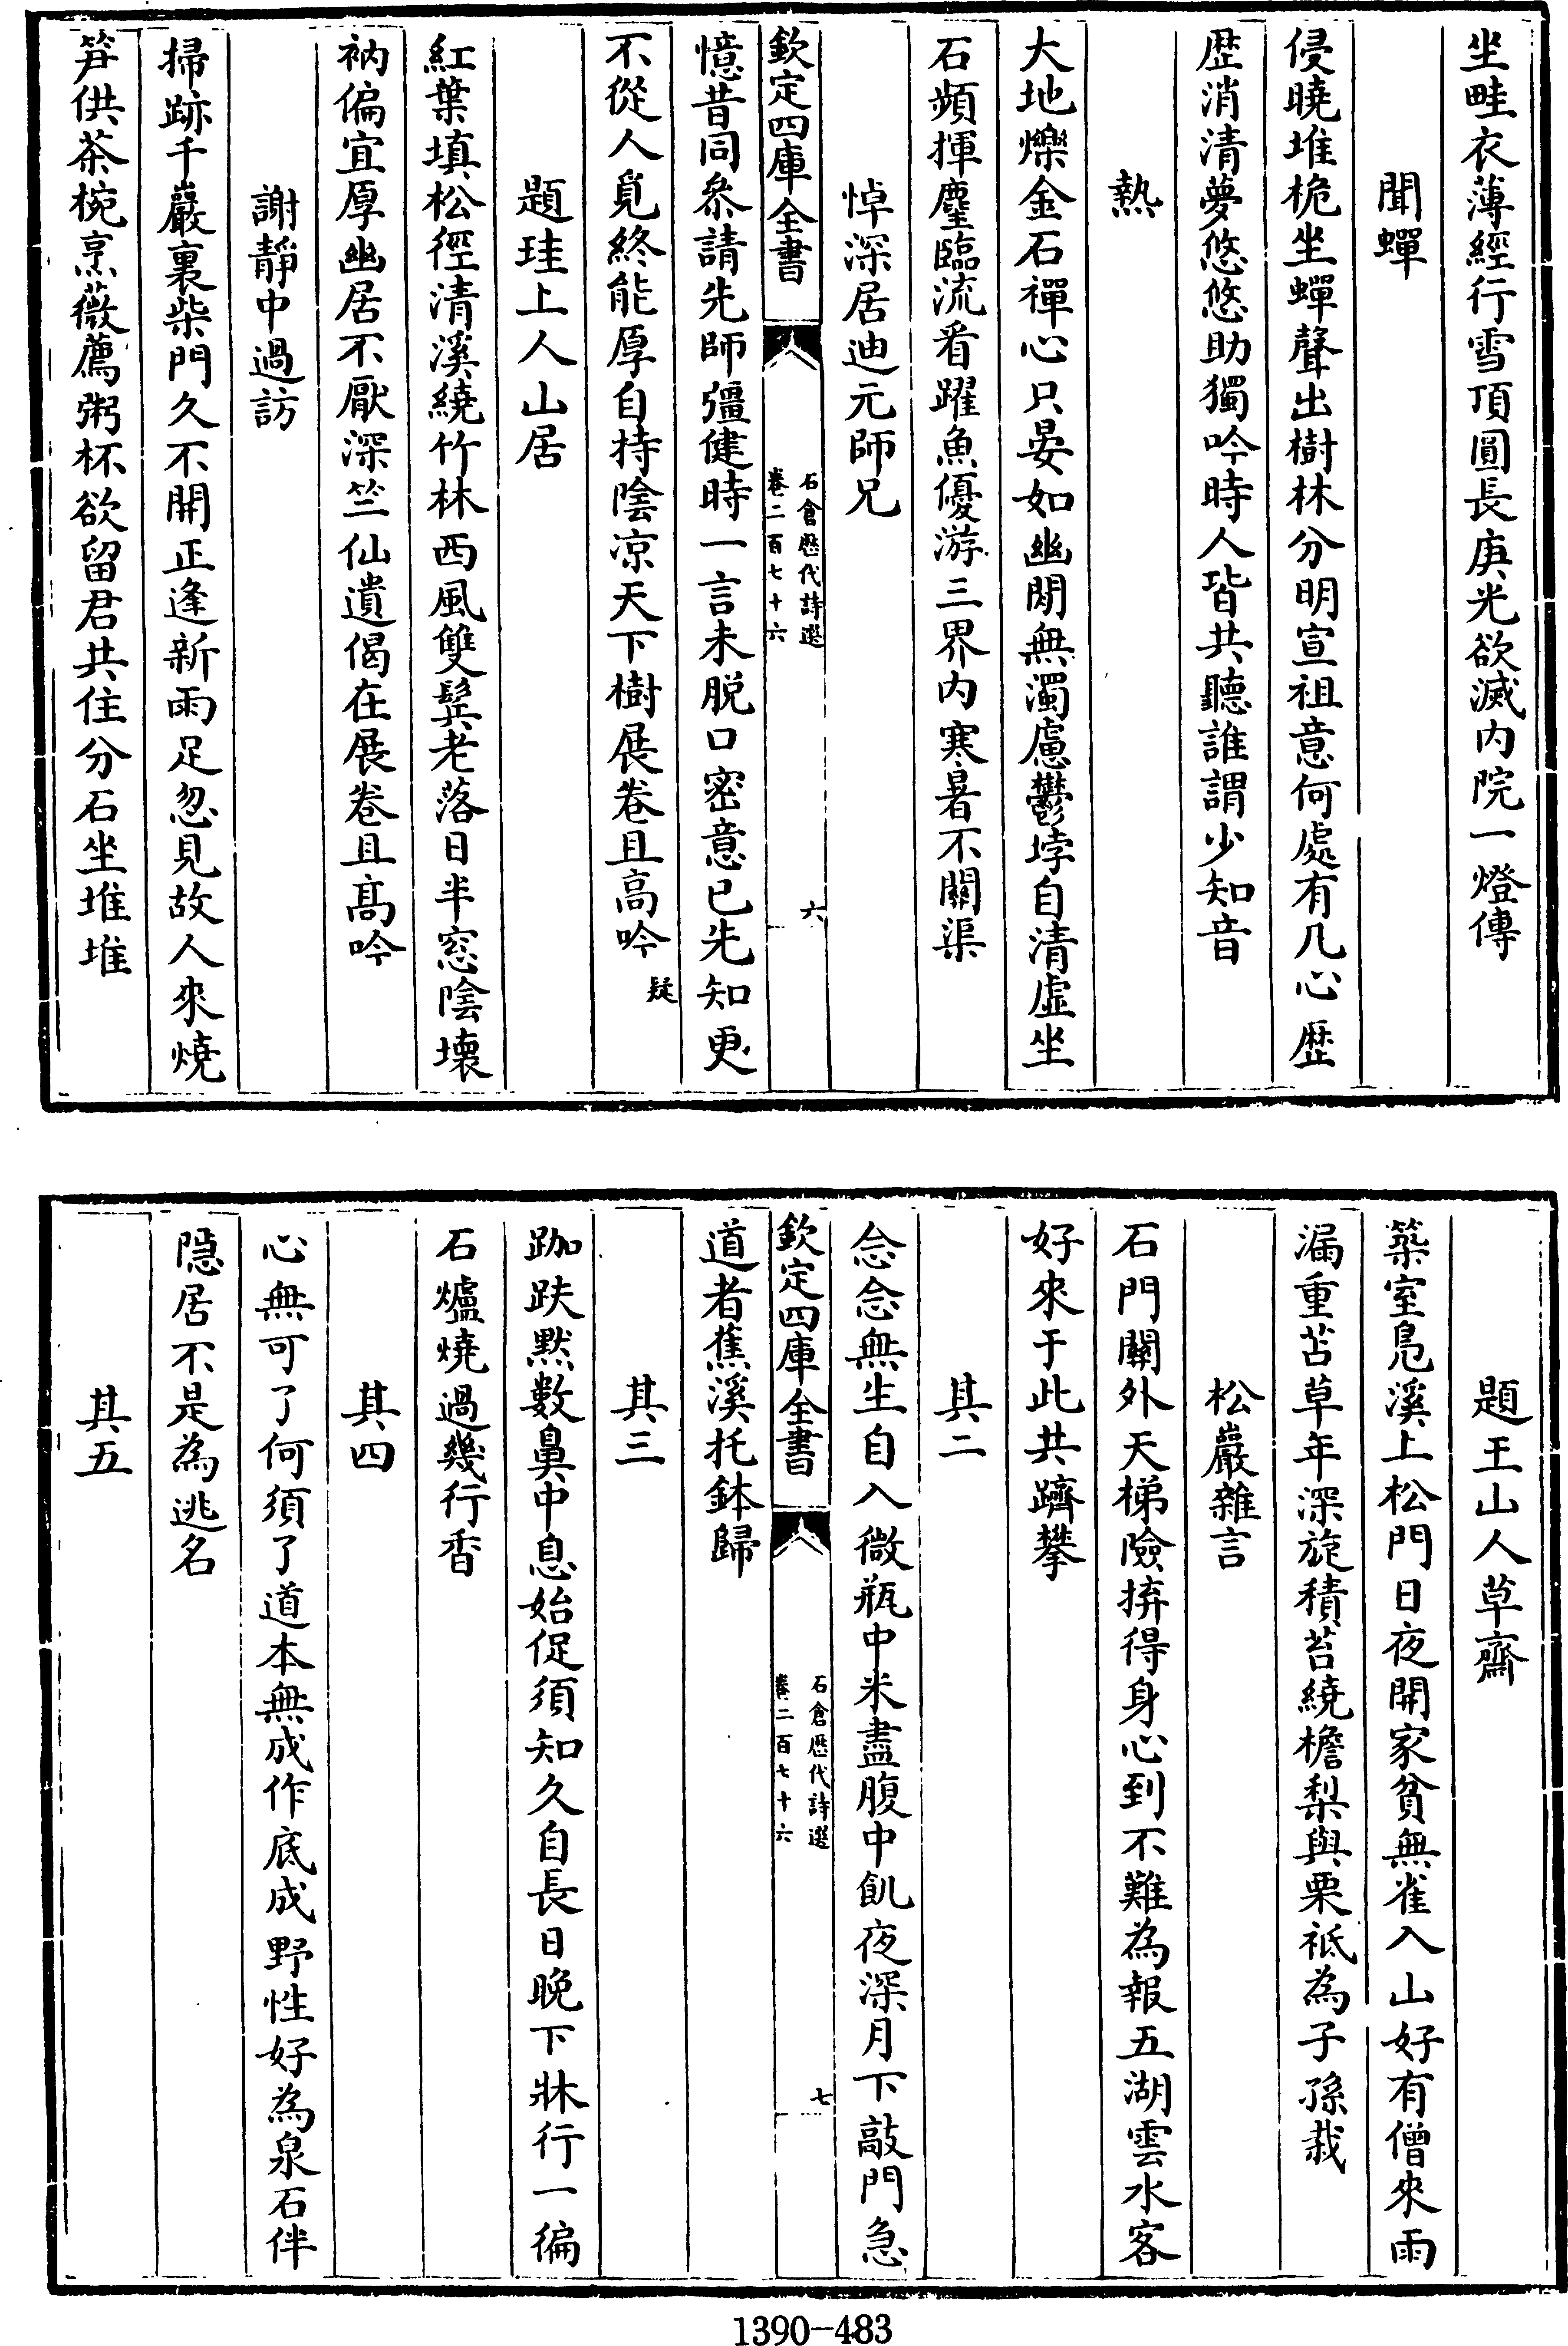 坐畦衣薄經行雪頂圓長庚光欲滅内院一燈傳
聞蟬
侵曉堆桅坐蟬聲出樹林分明宣祖意何處有凡心歴
歴消清夢悠悠助獨吟時人皆共聽誰謂少知音
熱
大地爍金石禪心只晏如幽閒無濁慮鬱悖自清虚坐
石頻揮麈臨流看躍魚優游三界内寒暑不關渠
悼深居迪元師兄
欽定四庫全書
石倉歴代詩選
卷二百七十六
六
憶昔同叅請先師彊健時一言未脱口密意已先知更
不從人覓終能厚自持陰凉天下樹展卷且高吟疑
題珪上人山居
紅葉填松徑清溪繞竹林西風雙鬂老落日半窓陰壊
衲偏宜厚幽居不厭深竺仙遺偈在展卷且髙吟
謝靜中過訪
掃跡千巖裏柴門久不開正逢新雨足忽見故人來燒
笋供茶椀烹薇薦粥杯欲留君共住分石坐堆堆
題王山人草齋
築室鳧溪上松門日夜開家貧無雀入山好有僧來雨
漏重苫草年深旋積苔繞檐梨與栗祗為子孫栽
松巖雜言
石門闗外天梯險拚得身心到不難為報五湖雲水客
好來于此共躋攀
其二
念念無生自入微瓶中米盡腹中飢夜深月下敲門急
欽定四庫全書
石倉歴代詩選
卷二百七十六
七
道者蕉溪托鉢歸
其三
跏趺默數鼻中息始促須知久自長日晚下牀行一徧
石爐燒過幾行香
其四
心無可了何須了道本無成作底成野性好為泉石伴
隠居不是為逃名
其五
1390-483